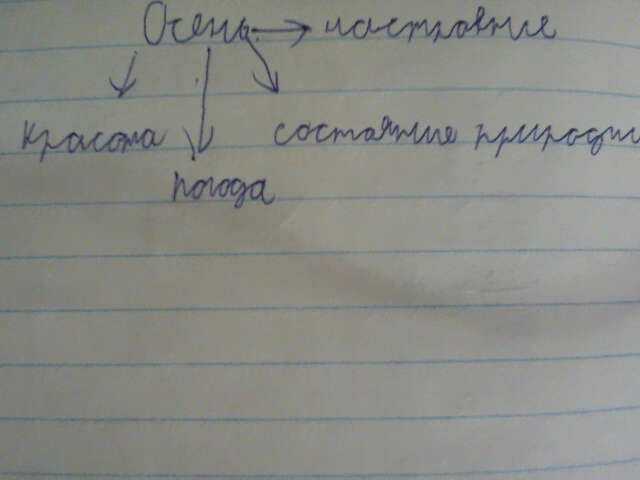 Осень → настровние
красота
состояние природы
погода